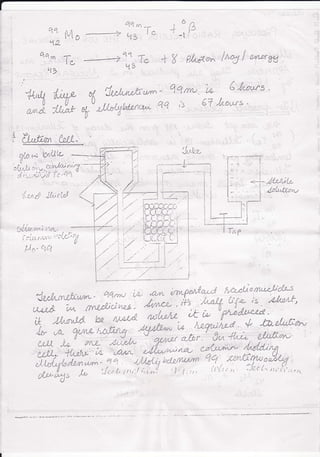 99 Mo 42 → 99m Tc 43 + 0 β -1
99m Tc 43 → 99 Tc 43 + γ photon / ray / energy
Half life of Technetium - 99m is 6 hours.
and that of Molybdenum 99 is 67 hours.
Elution Cell.
glass bottle
Tube
solution containing
Tc-99
Lead shield
Sterile
solution
Tap
Alumina
column
Mn-99
Technetium - 99m is an important radionuclides
used in medicines. Since its half life is short,
it should be used where it is produced.
So a generating system is required. & elution
cell is one such generator. In this elution
cell, there is an alumina column holding
Molybdenum - 99. Molybdenum 99 continuously
decays to